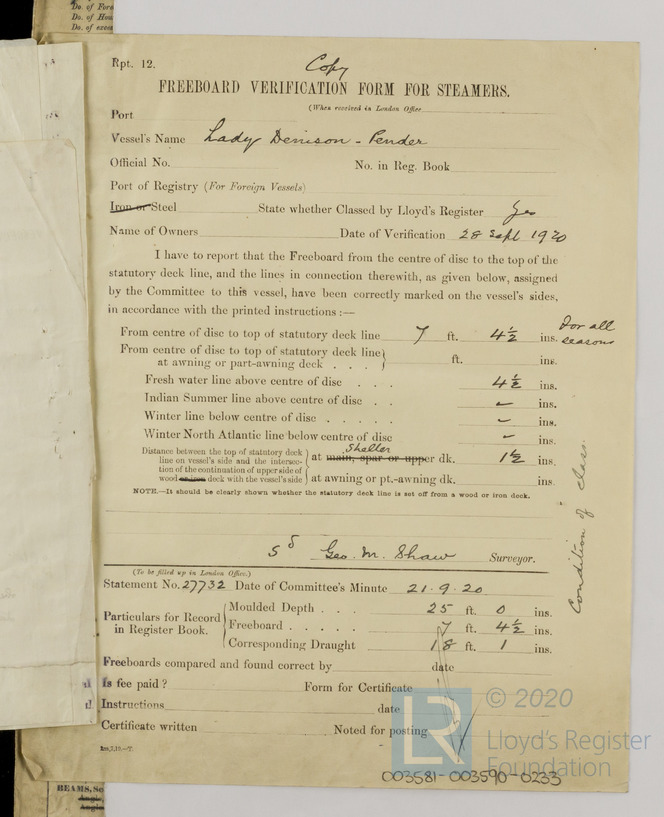 Do. of Fore
Do. of Hou
Do. of exces
Rpt. 12.
Copy
FREEBOARD VERIFICATION FORM FOR STEAMERS.
(When received in London Office
Port
Vessel's Name Lady Denison - Pender
Official No. No. in Reg. Book
Port of Registry (For Foreign Vessels)
Iron or Steel State whether Classed by Lloyd's Register Yes
Name of Owners Date of Verification 28 Sept 1920
I have to report that the Freeboard from the centre of disc to the top of the
statutory deck line, and the lines in connection therewith, as given below, assigned
by the Committee to this vessel, have been correctly marked on the vessel's sides,
in accordance with the printed instructions :—
From centre of disc to top of statutory deck line 7 ft. 4½ ins. For all seasons
From centre of disc to top of statutory deck line
at awning or part-awning deck . . . ft. ins.
Fresh water line above centre of disc . . . 4½ ins.
Indian Summer line above centre of disc . . - ins.
Winter line below centre of disc . . . . . - ins.
Winter North Atlantic line below centre of disc - ins.
Distance between the top of statutory deck
line on vessel's side and the intersec-
tion of the continuation of upper side of
wood or iron deck with the vessel's side
Shelter
at main, spar or upper dk. 1½ ins.
at awning or pt.-awning dk. ins.
NOTE.—It should be clearly shown whether the statutory deck line is set off from a wood or iron deck.
Condition of class.
Sd Geo. M. Shaw Surveyor.
(To be filled up in London Office.)
Statement No. 27732 Date of Committee's Minute 21.9.20
Particulars for Record
in Register Book.
Moulded Depth . . . 25 ft. 0 ins.
Freeboard . . . . . 7 ft. 4½ ins.
Corresponding Draught 18 ft. 1 ins.
Freeboards compared and found correct by date
Is fee paid ? Form for Certificate
Instructions date
Certificate written Noted for posting
© 2020
LR
Lloyd's Register
Foundation
003581-003590-0233
BEAMS, Se
Angl
Angle